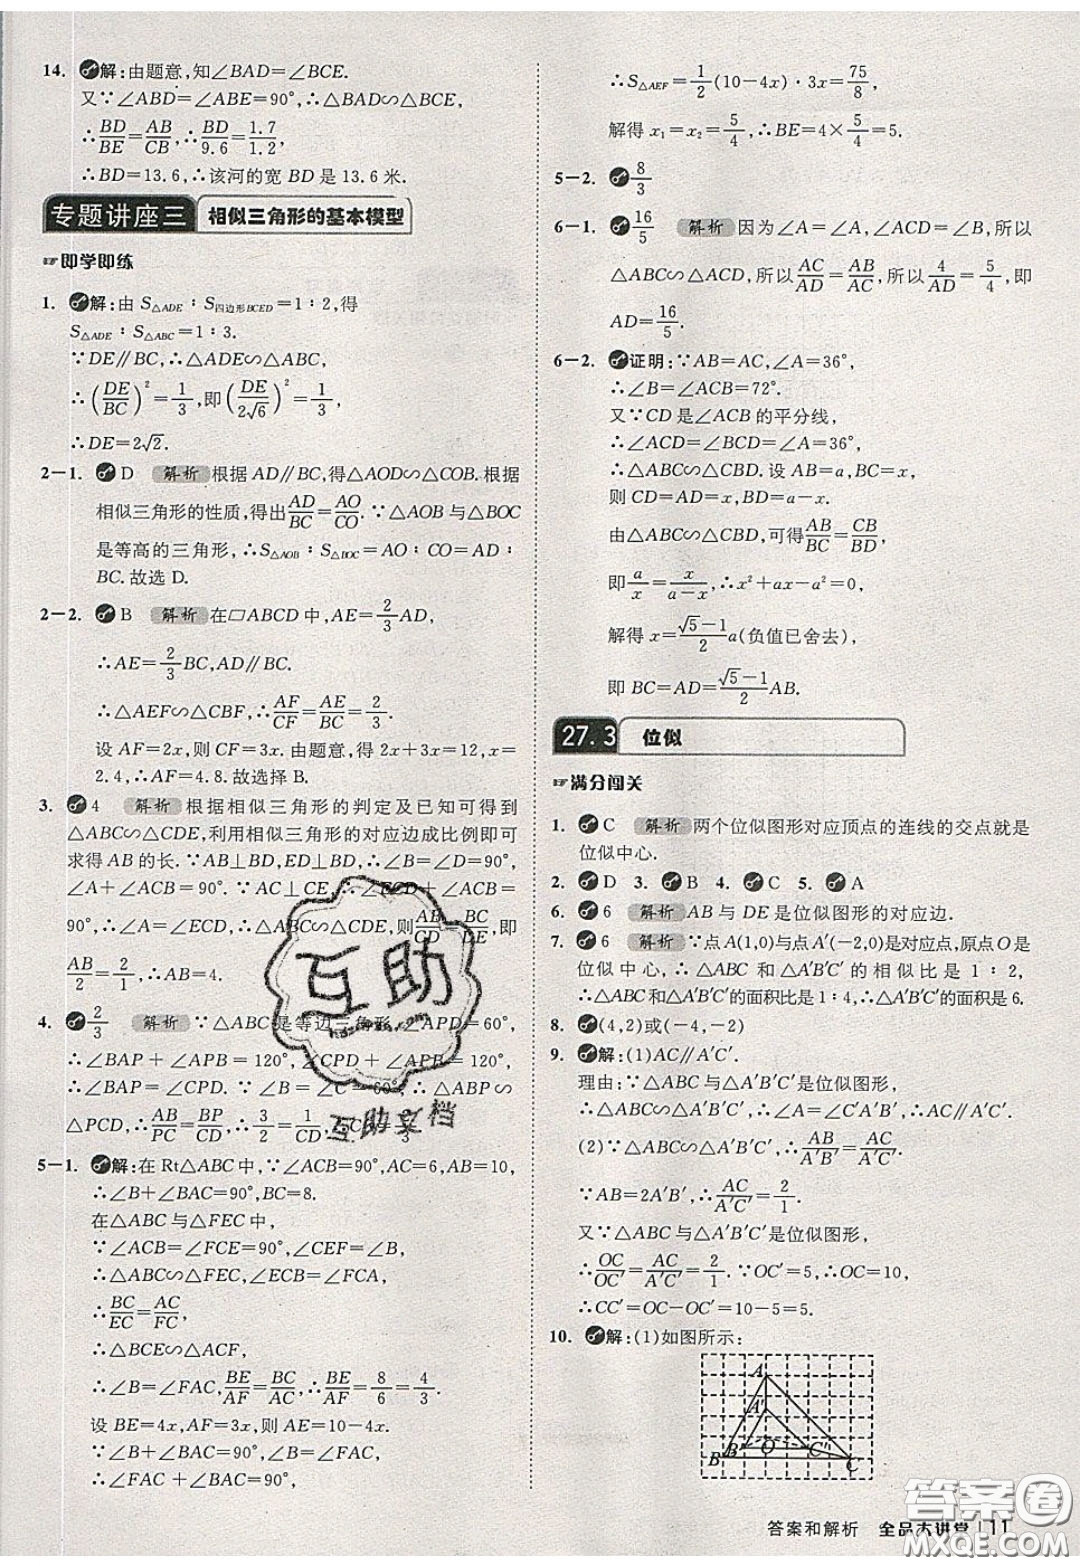 14. 解:由题意,知∠BAD=∠BCE.
又∵∠ABD=∠ABE=90°,∴△BAD∽△BCE,
∴BD/BE=AB/CB,∴BD/9.6=1.7/1.2,
∴BD=13.6,∴该河的宽 BD 是 13.6 米.
专题讲座三 相似三角形的基本模型
☞即学即练
1. 解:由 S△ADE∶S四边形BCED=1∶2,得
S△ADE∶S△ABC=1∶3.
∵DE∥BC,∴△ADE∽△ABC,
∴(DE/BC)²=1/3,即(DE/2√6)²=1/3,
∴DE=2√2.
2-1. D 解析 根据 AD∥BC,得△AOD∽△COB.根据
相似三角形的性质,得出AD/BC=AO/CO.∵△AOB 与△BOC
是等高的三角形,∴S△AOB∶S△BOC=AO∶CO=AD∶
BC.故选 D.
2-2. B 解析 在▱ABCD 中,AE=2/3AD,
∴AE=2/3BC,AD∥BC.
∴△AEF∽△CBF,∴AF/CF=AE/BC=2/3.
设 AF=2x,则 CF=3x.由题意,得 2x+3x=12,∴x=
2.4,∴AF=4.8.故选择 B.
3. 4 解析 根据相似三角形的判定及已知可得到
△ABC∽△CDE,利用相似三角形的对应边成比例即可
求得 AB 的长.∵AB⊥BD,ED⊥BD,∴∠B=∠D=90°,
∠A+∠ACB=90°.∵AC⊥CE,∴∠ECD+∠ACB=
90°,∴∠A=∠ECD,∴△ABC∽△CDE,则AB/CD=BC/DE,即
AB/2=2/1,∴AB=4.
4. 2/3 解析 ∵△ABC 是等边三角形,∠APD=60°,
∴∠BAP+∠APB=120°,∠CPD+∠APB=120°.
∴∠BAP=∠CPD.∵∠B=∠C=60°,∴△ABP∽
△PCD,∴AB/PC=BP/CD,∴3/2=1/CD,∴CD=2/3.
5-1. 解:在 Rt△ABC 中,∵∠ACB=90°,AC=6,AB=10,
∴∠B+∠BAC=90°,BC=8.
在△ABC 与△FEC 中,
∵∠ABC=∠FCE=90°,∠CEF=∠BAC,
∴△ABC∽△EFC,∠EFC=∠B,
∴BC/EC=AC/FC,
∴△BCE∽△ACF.
∴∠B=∠FAC,BE/AF=BC/AC,∴BE/AF=8/6=4/3.
设 BE=4x,AF=3x,则 AE=10-4x.
∵∠B+∠BAC=90°,∠B=∠FAC,
∴∠FAC+∠BAC=90°,
∴S△AEF=1/2(10-4x)·3x=75/8,
解得 x₁=x₂=5/4,∴BE=4×5/4=5.
5-2. 8/3
6-1. 16/5 解析 因为∠A=∠A,∠ACD=∠B,所以
△ABC∽△ACD,所以AC/AD=AB/AC,所以4/AD=5/4,即
AD=16/5.
6-2. 证明:∵AB=AC,∠A=36°,
∴∠B=∠ACB=72°.
又∵CD 是∠ACB 的平分线,
∴∠ACD=∠BCD=∠A=36°,
∴△ABC∽△CBD.设 AB=a,BC=x,
则 CD=AD=x,BD=a-x.
由△ABC∽△CBD,可得AB/BC=CB/BD,
即a/x=x/(a-x),∴x²+ax-a²=0,
解得 x=(√5-1)/2 a(负值已舍去),
即 BC=AD=(√5-1)/2 AB.
27.3 位似
☞满分闯关
1. C 解析 两个位似图形对应顶点的连线的交点就是
位似中心.
2. D 3. B 4. C 5. A
6. 6 解析 AB 与 DE 是位似图形的对应边.
7. 6 解析 ∵点A(1,0)与点A′(-2,0)是对应点,原点O是
位似中心,∴△ABC 和△A′B′C′的相似比是 1∶2,
∴△ABC和△A′B′C′的面积比是1∶4,∴△A′B′C′的面积是6.
8. (4,2)或(-4,-2)
9. 解:(1)AC∥A′C′.
理由:∵△ABC 与△A′B′C′是位似图形,
∴△ABC∽△A′B′C′,∴∠A=∠C′A′B′,∴AC∥A′C′.
(2)∵△ABC∽△A′B′C′,∴AB/A′B′=AC/A′C′.
∵AB=2A′B′,∴AC/A′C′=2/1.
又∵△ABC 与△A′B′C′是位似图形,
∴OC/OC′=AC/A′C′=2/1.∵OC′=5,∴OC=10,
∴CC′=OC-OC′=10-5=5.
10. 解:(1)如图所示:
A
A′
B B′ O C′ C
互助
互助文档
答案圈
MXQE.COM
答案和解析 全品大讲堂 11